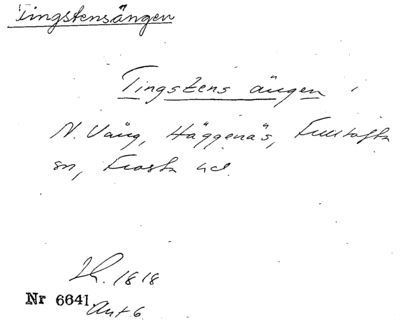 Tingstensängen
Tingstens ängen
N. Vång, Häggenäs, Fulltofta
sn, Frosta hd.
1818
Nr 6641.
Akt 6.